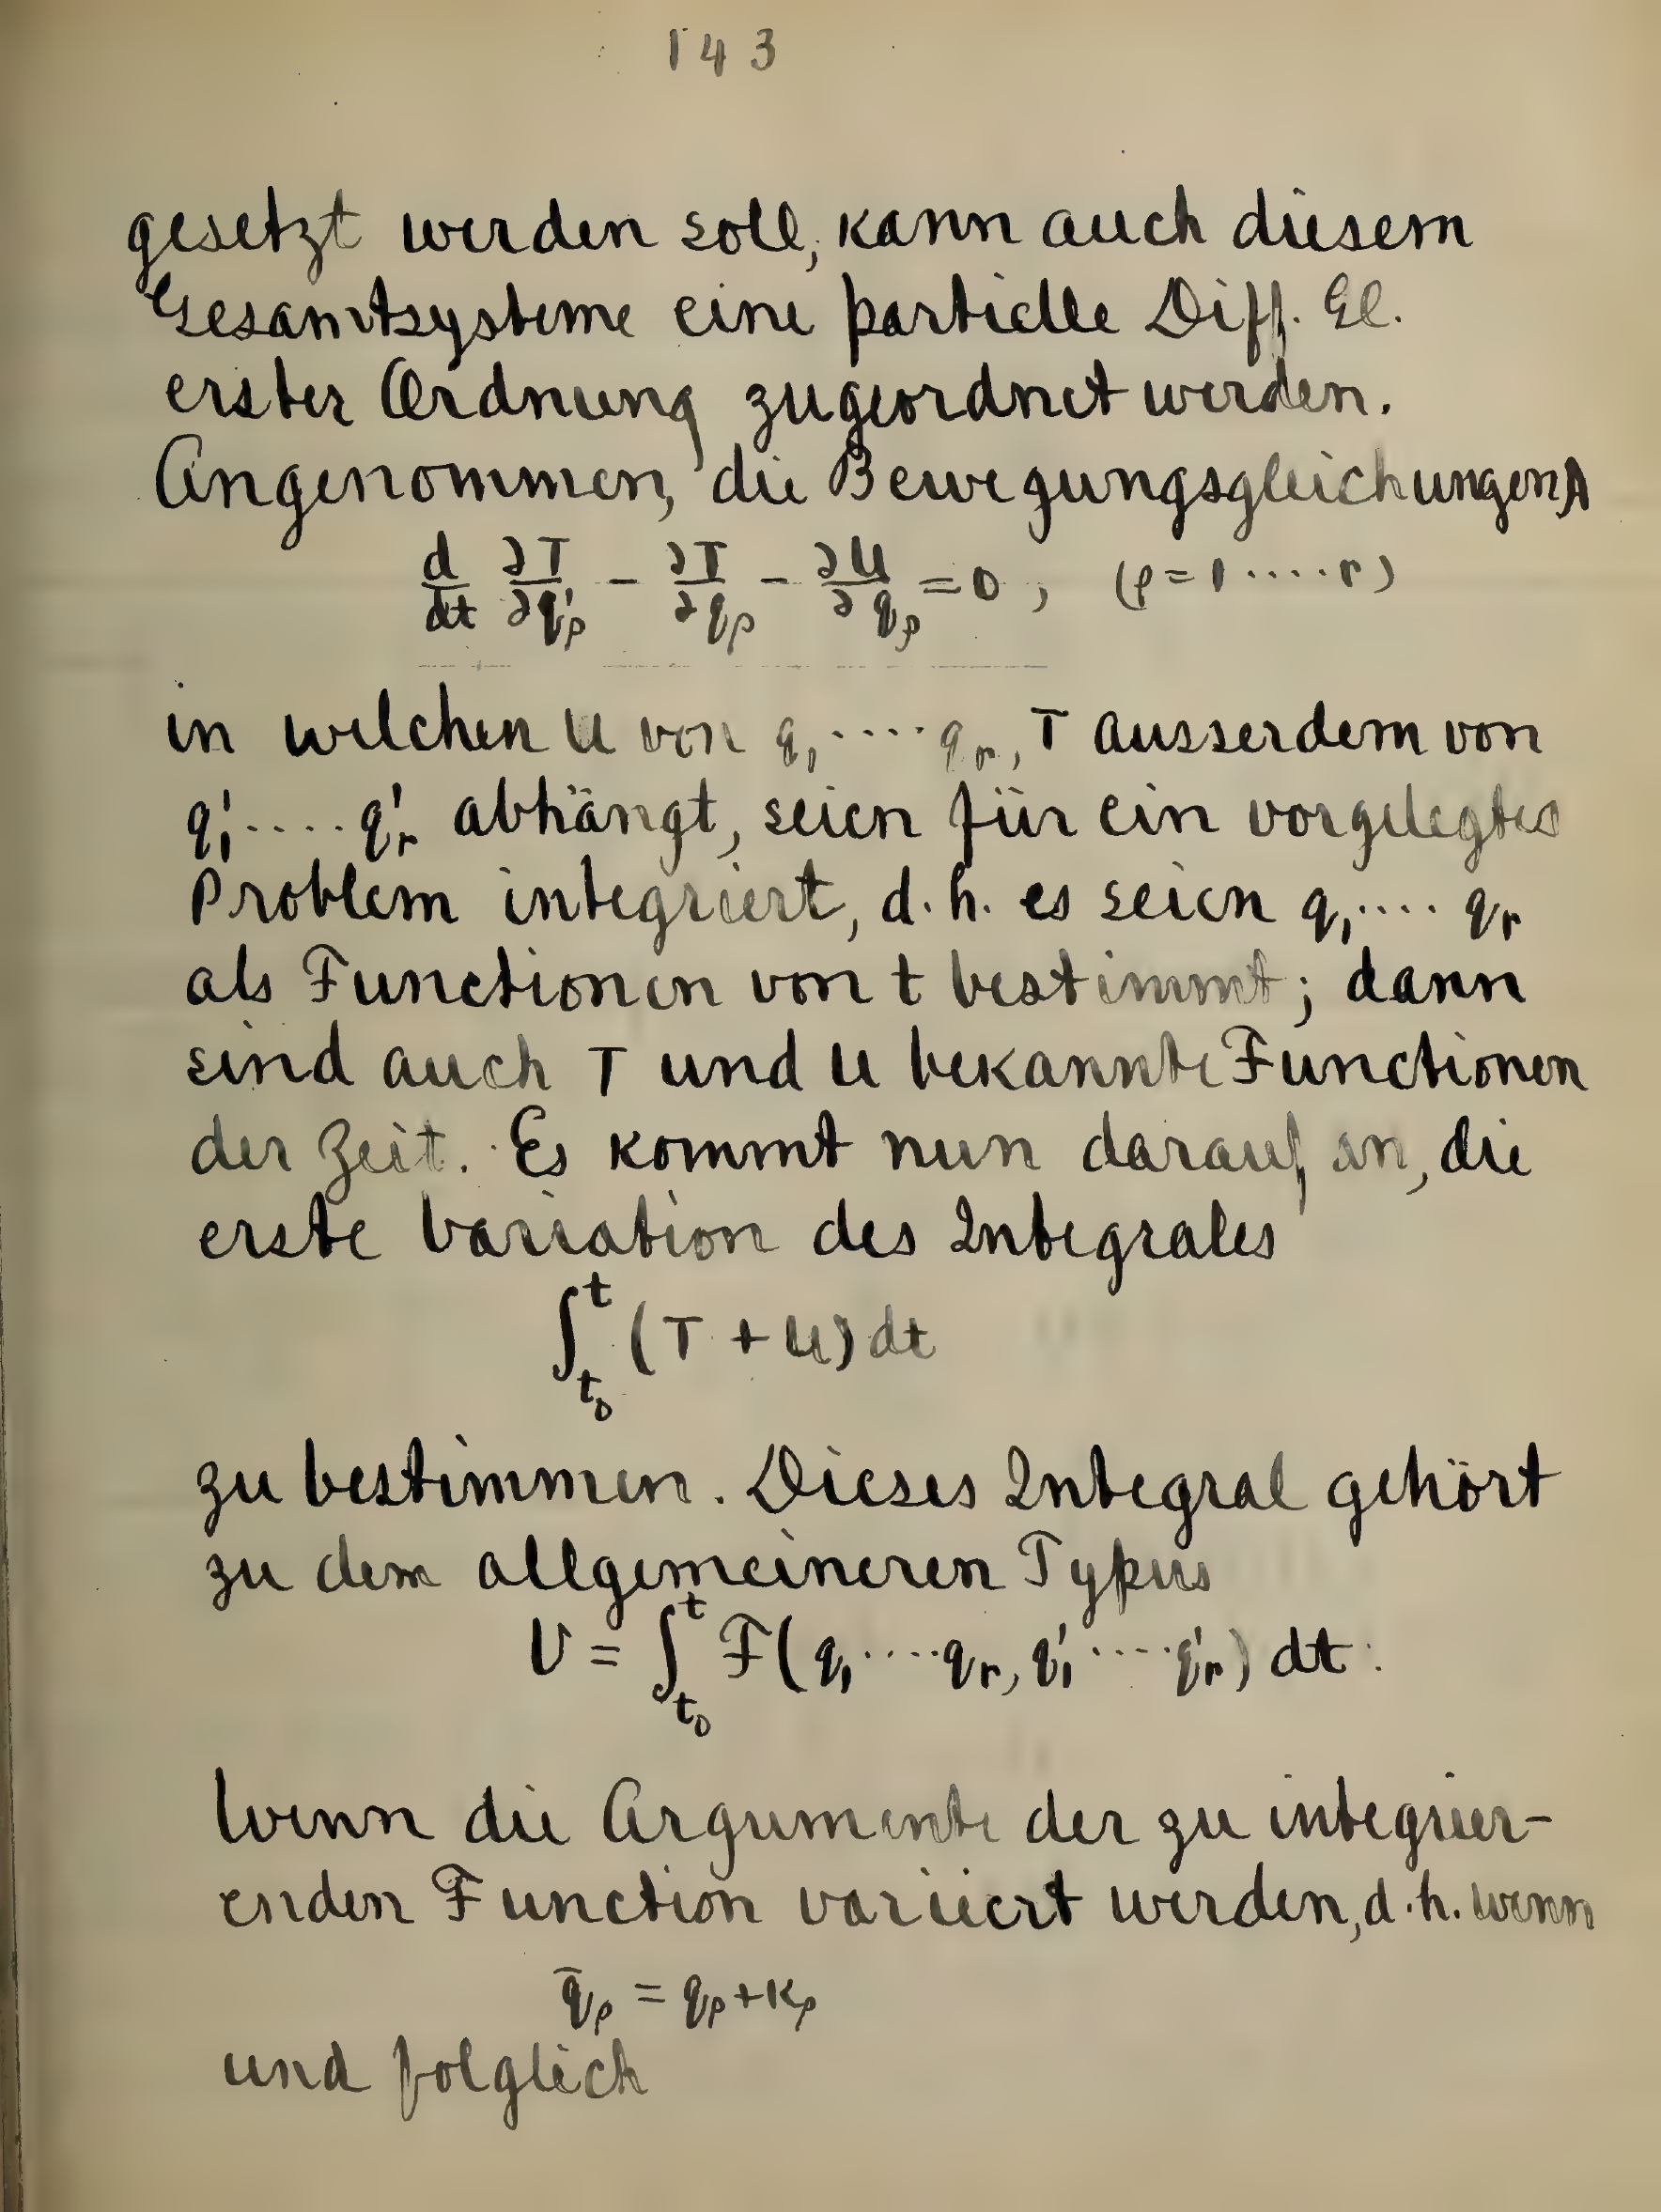 143
gesetzt werden soll, kann auch diesem
Gesamtsysteme eine partielle Diff. Gl.
erster Ordnung zugeordnet werden.
Angenommen, die Bewegungsgleichungen
d/dt ∂T/∂q'ρ - ∂T/∂qρ - ∂U/∂qρ = 0, (ρ=1.....r)
in welchen U von q₁.....qᵣ, T ausserdem von
q'₁.....q'ᵣ abhängt, seien für ein vorgelegtes
Problem integriert, d.h. es seien q₁.... qᵣ
als Functionen von t bestimmt; dann
sind auch T und U bekannte Functionen
der Zeit. Es kommt nun darauf an, die
erste Variation des Integrales
∫ₜ₀ᵗ (T + U) dt
zu bestimmen. Dieses Integral gehört
zu dem allgemeineren Typus
V = ∫ₜ₀ᵗ F(q₁.....qᵣ, q'₁.....q'ᵣ) dt.
Wenn die Argumente der zu integrier-
enden Function variiert werden, d.h. wenn
q̄ρ = qρ + κρ
und folglich